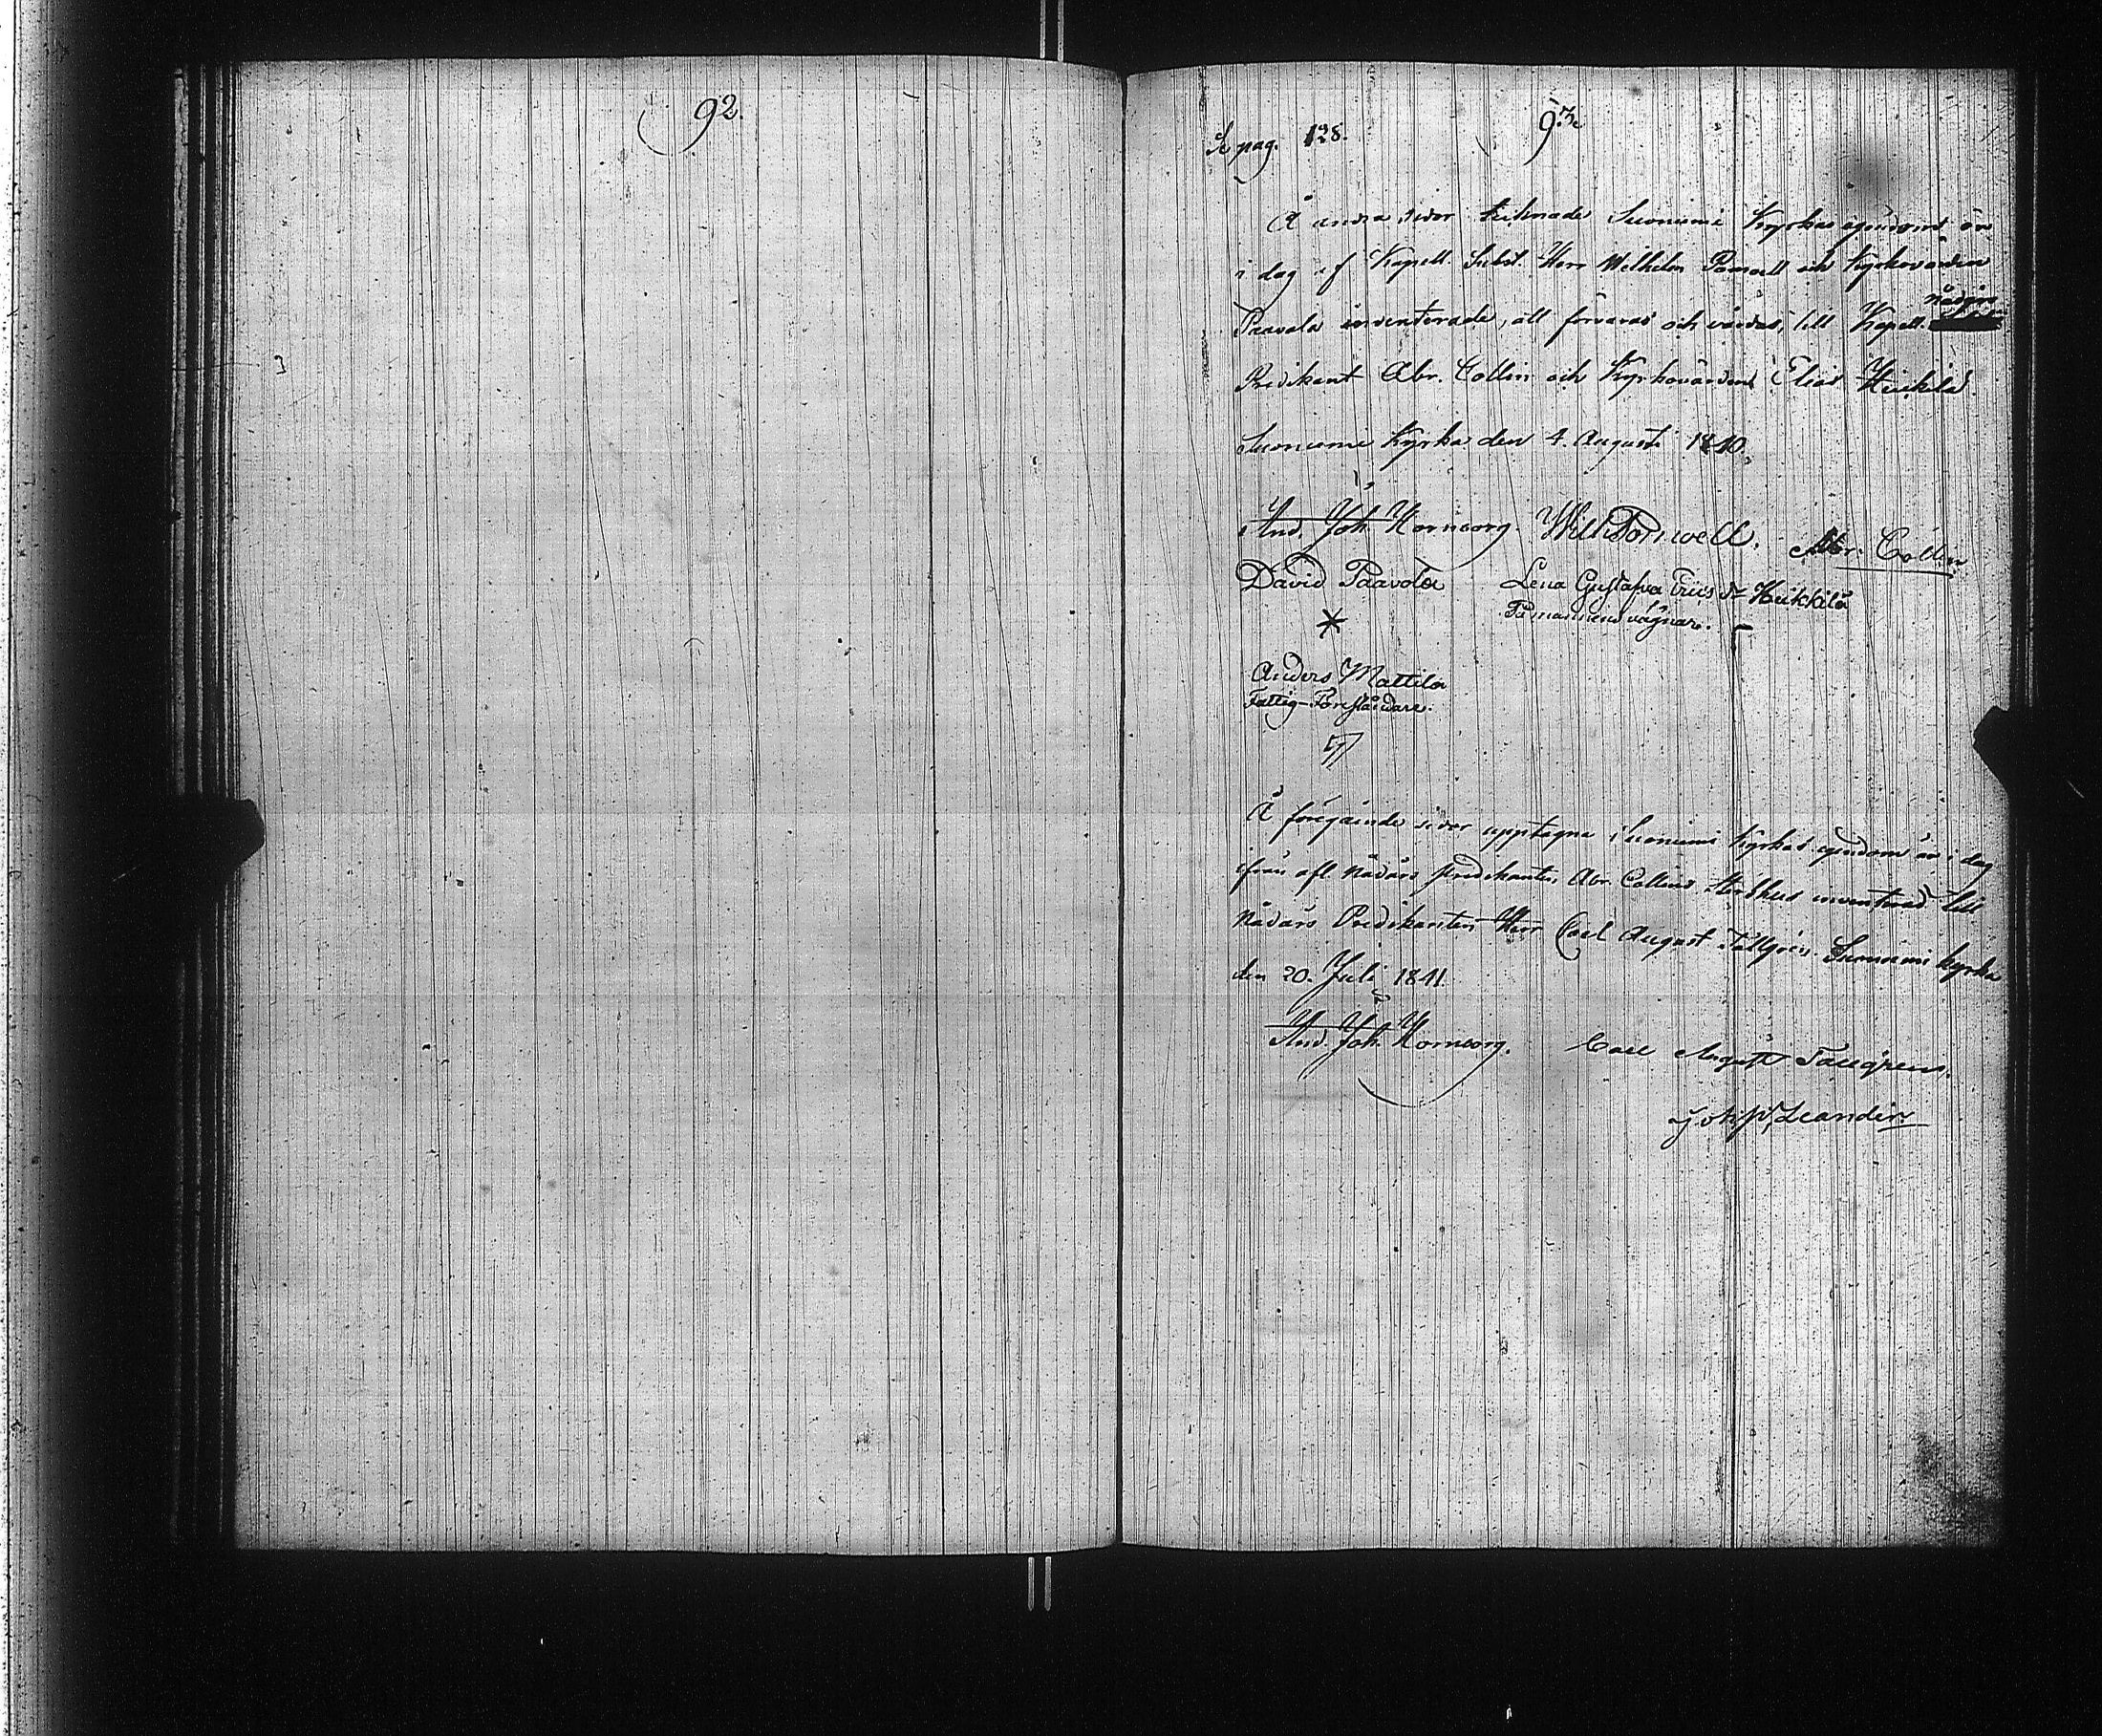 92.
Se pag. 128.
93.
Å andra sidor tecknade Suoniemi Kyrkas egendom är
i dag af Kapell. Subst. Herr Wilhelm Pomoell och Kyrkovärden
Paavola inventerade, att förvaras och vårdas, till Kapell. Nådårs
Predikant Abr. Collin och Kyrkovärden Elias Heikkilä.
Suoniemi Kyrka den 4. Augusti 1840.
And. Joh. Hornborg. Wilh Pomoell. Abr. Collin
David Paavola Lena Gustafva Heikkilä
På mannens vägnar.
Anders Mattila
Fattig-Föreståndare.
Å föregående sidor upptagne Suoniemi Kyrkas egendom är i dag
ifrån afl. Nådårs predikanten Abr. Collins Sterbhus inventerad till
Nådårs Predikanten Herr Carl August Tallgren. Suoniemi kyrka
den 20. Juli 1841.
And. Joh. Hornborg. Carl August Tallgren.
Leander.